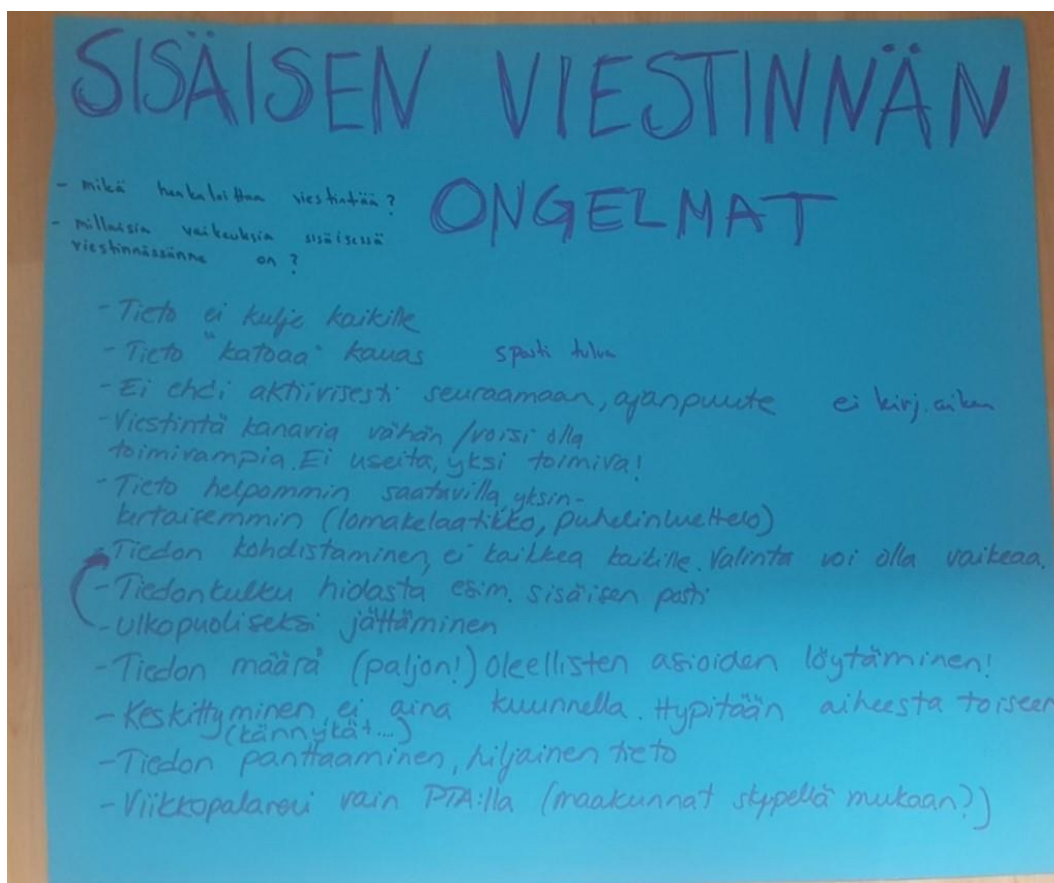 SISÄISEN VIESTINNÄN
ONGELMAT
- mikä hankaloittaa viestintää?
- millaisia vaikeuksia sisäisessä
viestinnässänne on?
- Tieto ei kulje kaikille
- Tieto "katoaa" kauas sposti tulva
- Ei ehdi aktiivisesti seuraamaan, ajanpuute ei kirj. aikaa
- Viestintä kanavia vähän / voisi olla
toimivampia. Ei useita, yksi toimiva!
- Tieto helpommin saatavilla, yksin-
kertaisemmin (lomakelaatikko, puhelinluettelo)
- Tiedon kohdistaminen, ei kaikkea kaikille. Valinta voi olla vaikeaa.
- Tiedonkulku hidasta esim. sisäisen posti
- Ulkopuoliseksi jättäminen
- Tiedon määrä (paljon!) Oleellisten asioiden löytäminen!
- Keskittyminen, ei aina kuunnella. Hypitään aiheesta toiseen
(kännykät...)
- Tiedon panttaaminen, hiljainen tieto
- Viikkopalaveri vain PTA:lla (maakunnat skypellä mukaan?)